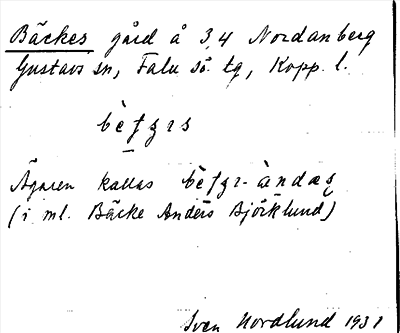 Bäckes gård å 3,4 Nordanberg
Gustavs sn, Falu sö. tg, Kopp. l.
Ägaren kallas
(i ml. Bäcke Anders Björklund)
Sven Nordlund 1931